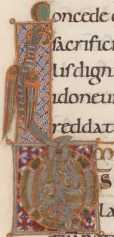 Concede
sacrifici
lusdign
idoneu
reddat
La